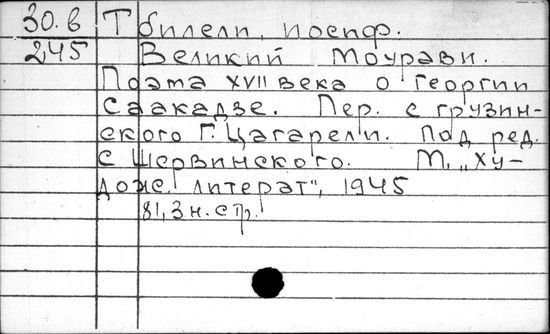 30.6 Тбилели, иосиф.
245 Великий Моурави.
Поэма XVII века о Георгии
Саакадзе. Пер. с грузин-
ского Г. Цагарели. Под ред.
С Шервинского. М., "Ху-
дож. литерат", 1945
81, 3 н. стр.